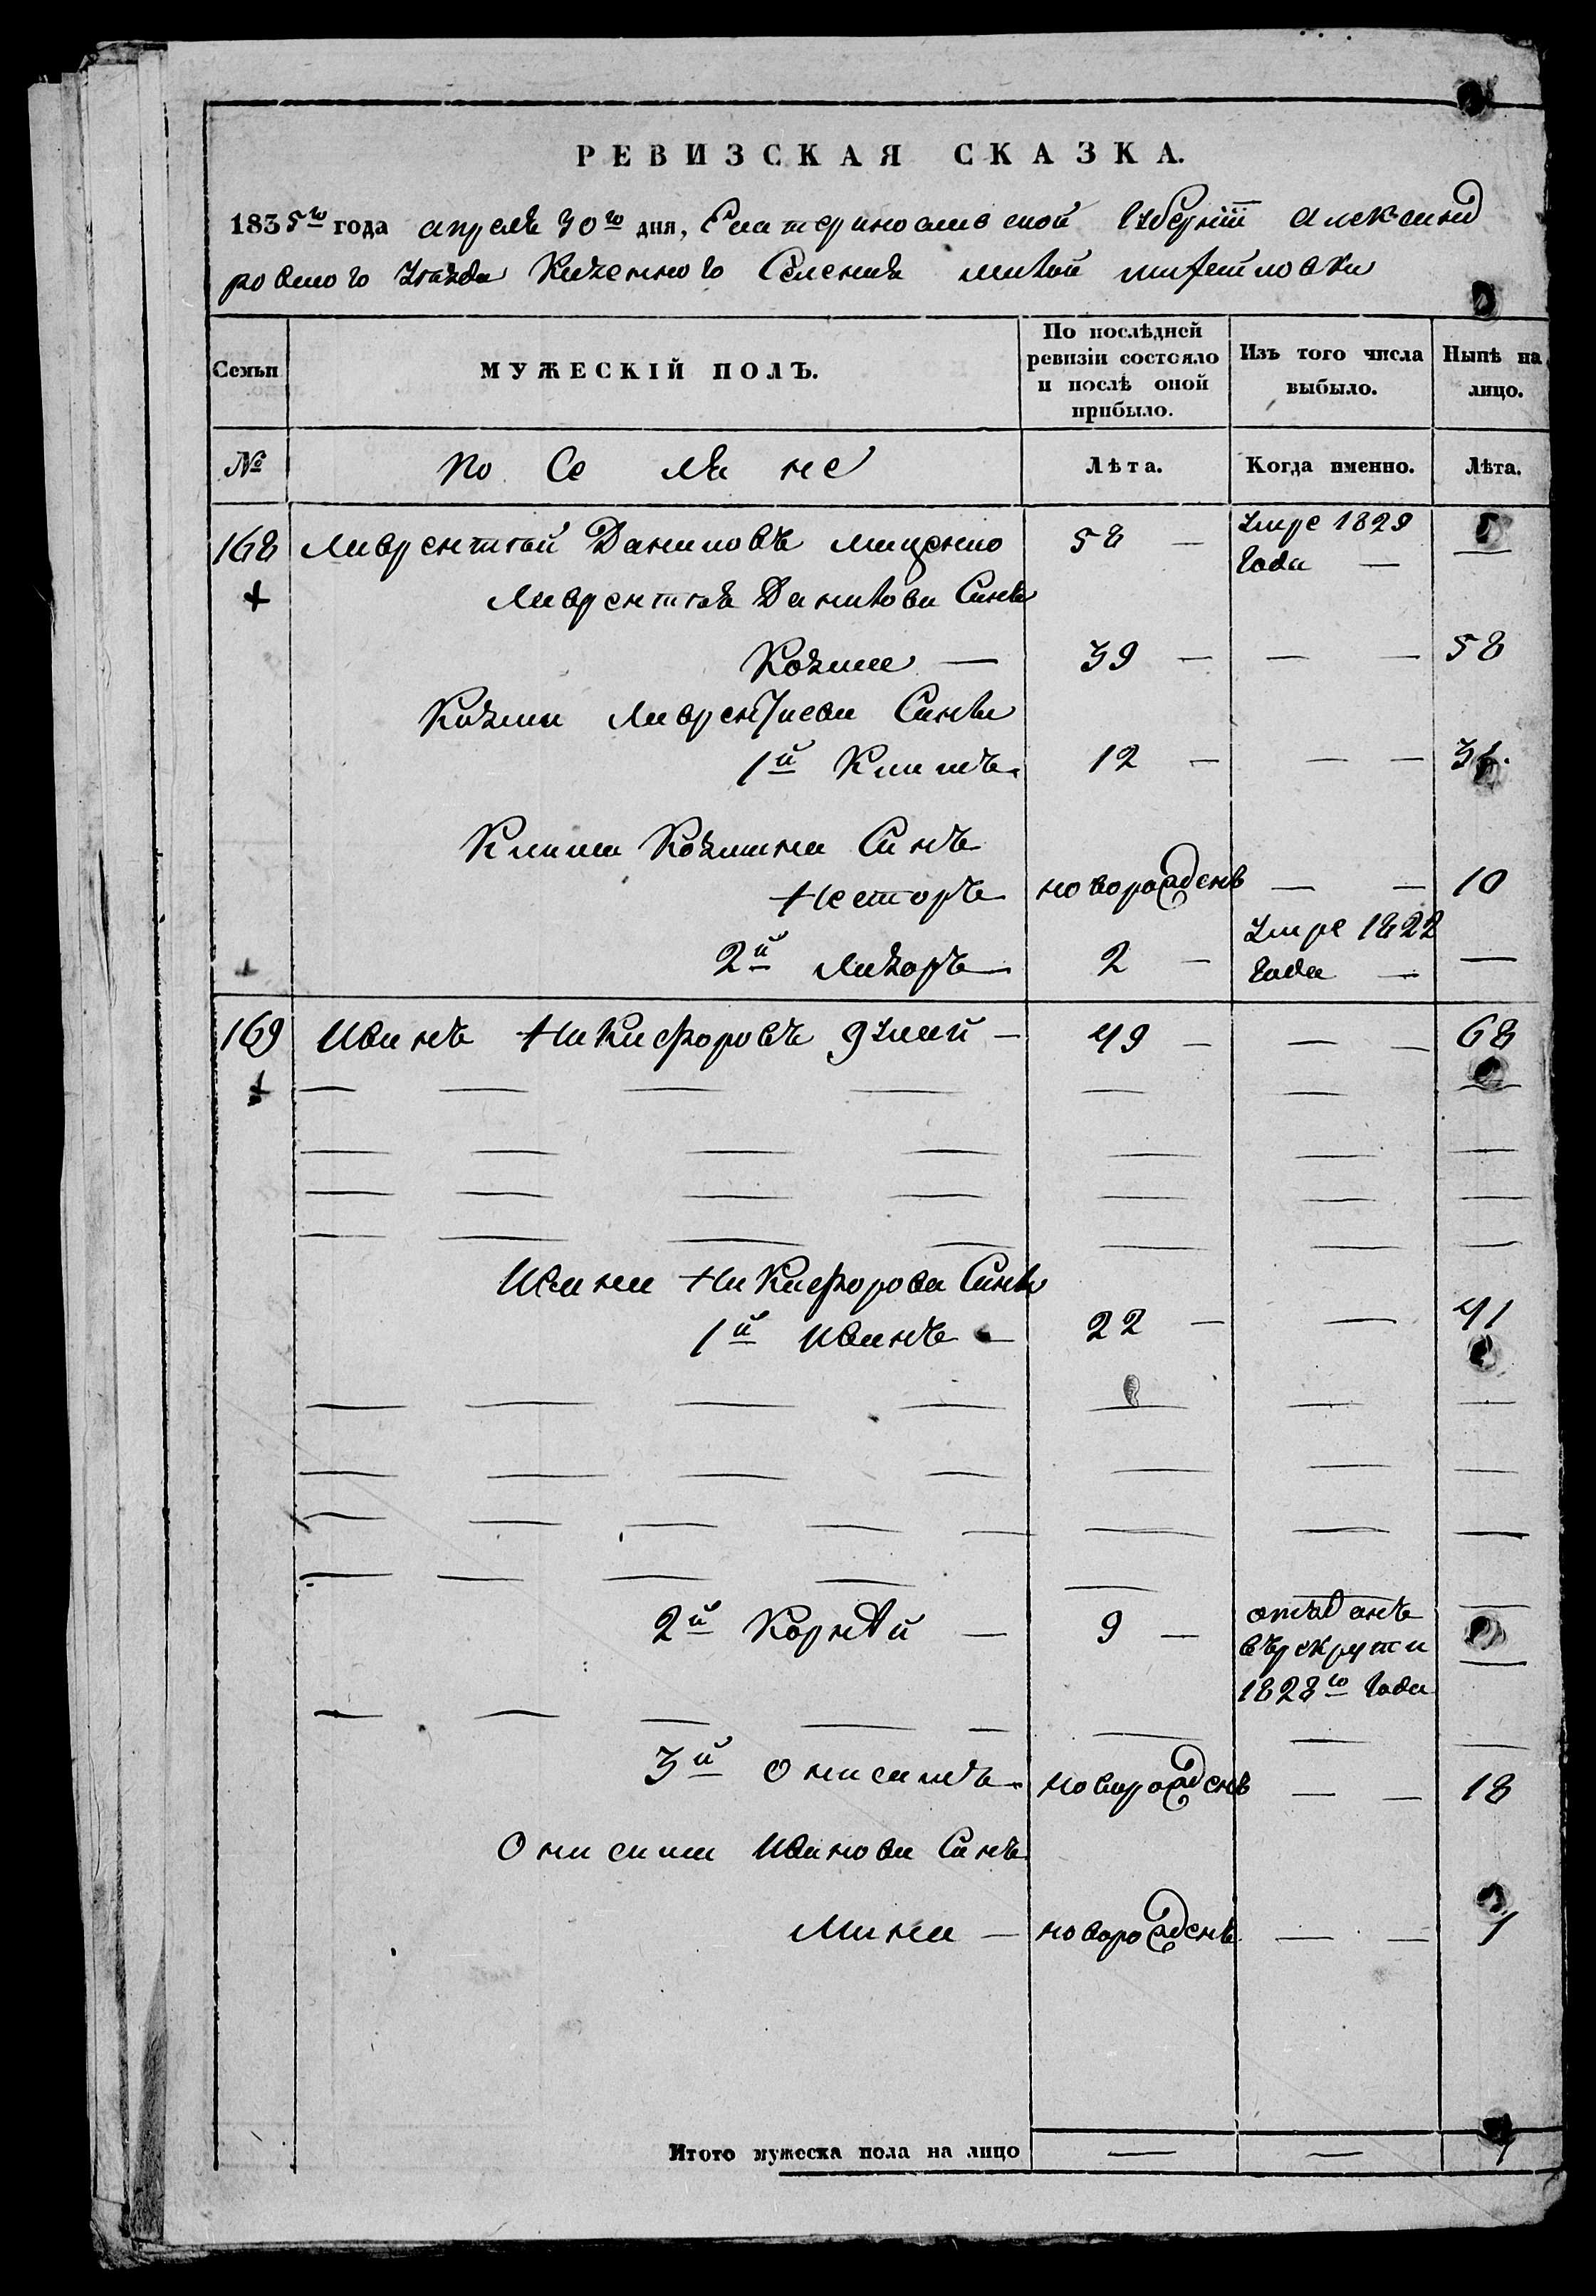 РЕВИЗСКАЯ СКАЗКА.
1835го года апреля 30го дня, Екатеринославской Губернии Александ
ровского Уезда Казенного Селения Малой
Семьи
МУЖЕСКІЙ ПОЛЪ.
По послѣдней ревизіи состояло и послѣ оной прибыло.
Изъ того числа выбыло.
Нынѣ на лицо.
№
По Се ля не
Лѣта.
Когда именно.
Лѣта.
168 Лаврентий Даниловъ Мащенко 58 — Умре 1829 —
Года —
Лаврентия Данилова Синъ
Козма — 39 — — — 58
Козми Лаврентиева Сини
1й Климъ 12 — — — 31
Клима Козмина Синъ
Несторъ новорожденъ — — 10
2й Лазоръ — 2 — Умре 1822
Года — —
169 Иванъ Никифоровъ — 49 — — — 68
Ивана Никифорова Сини
1й Иванъ — 22 — — 41
2й Корнѣй — 9 — отъданъ
въ рекрути —
1828го Года
3й Онисимъ новорожденъ — — 18
Онисима Иванова Синъ
Мина — новорожденъ — — 1
Итого мужеска пола на лицо — — 7